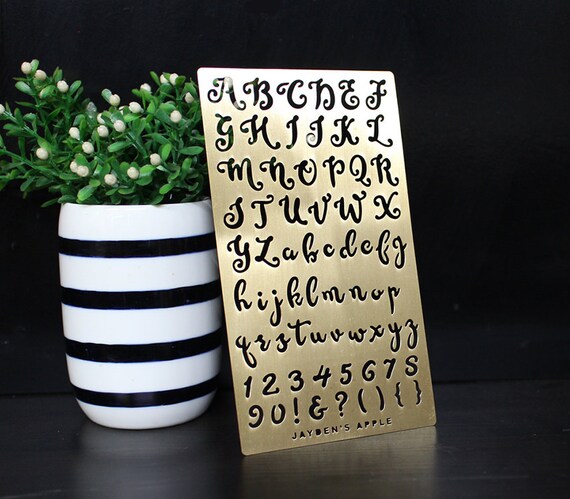 ABCDEF
GHIJKL
MNOPQR
STUVWX
YZabcdefg
hijklmnop
qrstuvwxyz
12345678
90!&?(){}
JAYDEN'S APPLE